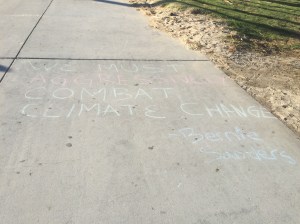 WE MUST
COMBAT
CLIMATE CHANGE
-Bernie
Sanders